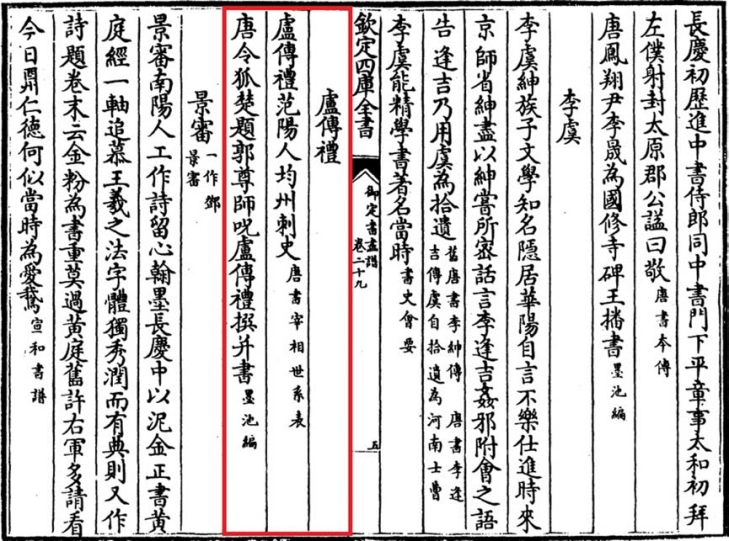 長慶初歷進中書侍郎同中書門下平章事太和初拜
左僕射封太原郡公謚曰敬唐書本傳
唐鳳翔尹李晟為國修寺碑王播書墨池編
李虞
李虞紳族子文學知名隱居華陽自言不樂仕進時來
京師省紳盡以紳嘗所宻話言李逢吉姦邪附會之語
告逢吉乃用虞為拾遺舊唐書李紳傳 唐書李逢
吉傳虞自拾遺為河南士曹
李虞能精學書著名當時書史會要
欽定四庫全書
御定書畫譜
卷二十九
五
盧傳禮
盧傳禮范陽人均州刺史唐書宰相世系表
唐令狐楚題郭尊師呪盧傳禮撰并書墨池編
景審一作鄧
景審
景審南陽人工作詩留心翰墨長慶中以泥金正書黃
庭經一軸追慕王羲之法字體獨秀潤而有典則又作
詩題卷末云金粉為書重莫過黃庭舊許右軍多請看
今日酬仁德何似當時為愛鵞宣和書譜